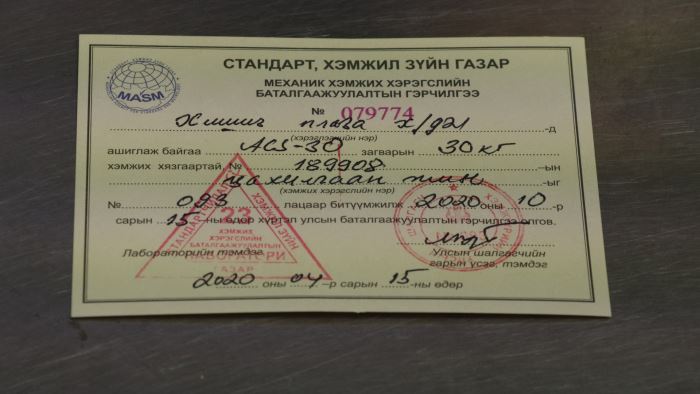 MASM
СТАНДАРТ, ХЭМЖИЛ ЗҮЙН ГАЗАР
МЕХАНИК ХЭМЖИХ ХЭРЭГСЛИЙН
БАТАЛГААЖУУЛАЛТЫН ГЭРЧИЛГЭЭ
№ 079774
плаза Х/д21 -д
(хэрэглэгчийн нэр)
ашиглаж байгаа ACS-30 загварын 30 кг
хэмжих хязгаартай, № 189908 -ын
цахилгаан -ыг
(хэмжих хэрэгслийн нэр)
№ 093 лацаар битүүмжилж 2020 оны 10 -р
сарын 15 -ны өдөр хүртэл улсын баталгаажуулалтын гэрчилгээ олгов.
СТАНДАРТ
ХЭМЖИЛ ЗҮЙН
23
ХЭМЖИХ
ХЭРЭГСЛИЙН
БАТАЛГААЖУУЛАЛТЫН
ЛАБОРАТОРИ
ГАЗАР
Лабораторийн тэмдэг
Улсын шалгагчийн
гарын үсэг, тэмдэг
2020 оны 04 -р сарын 15 -ны өдөр